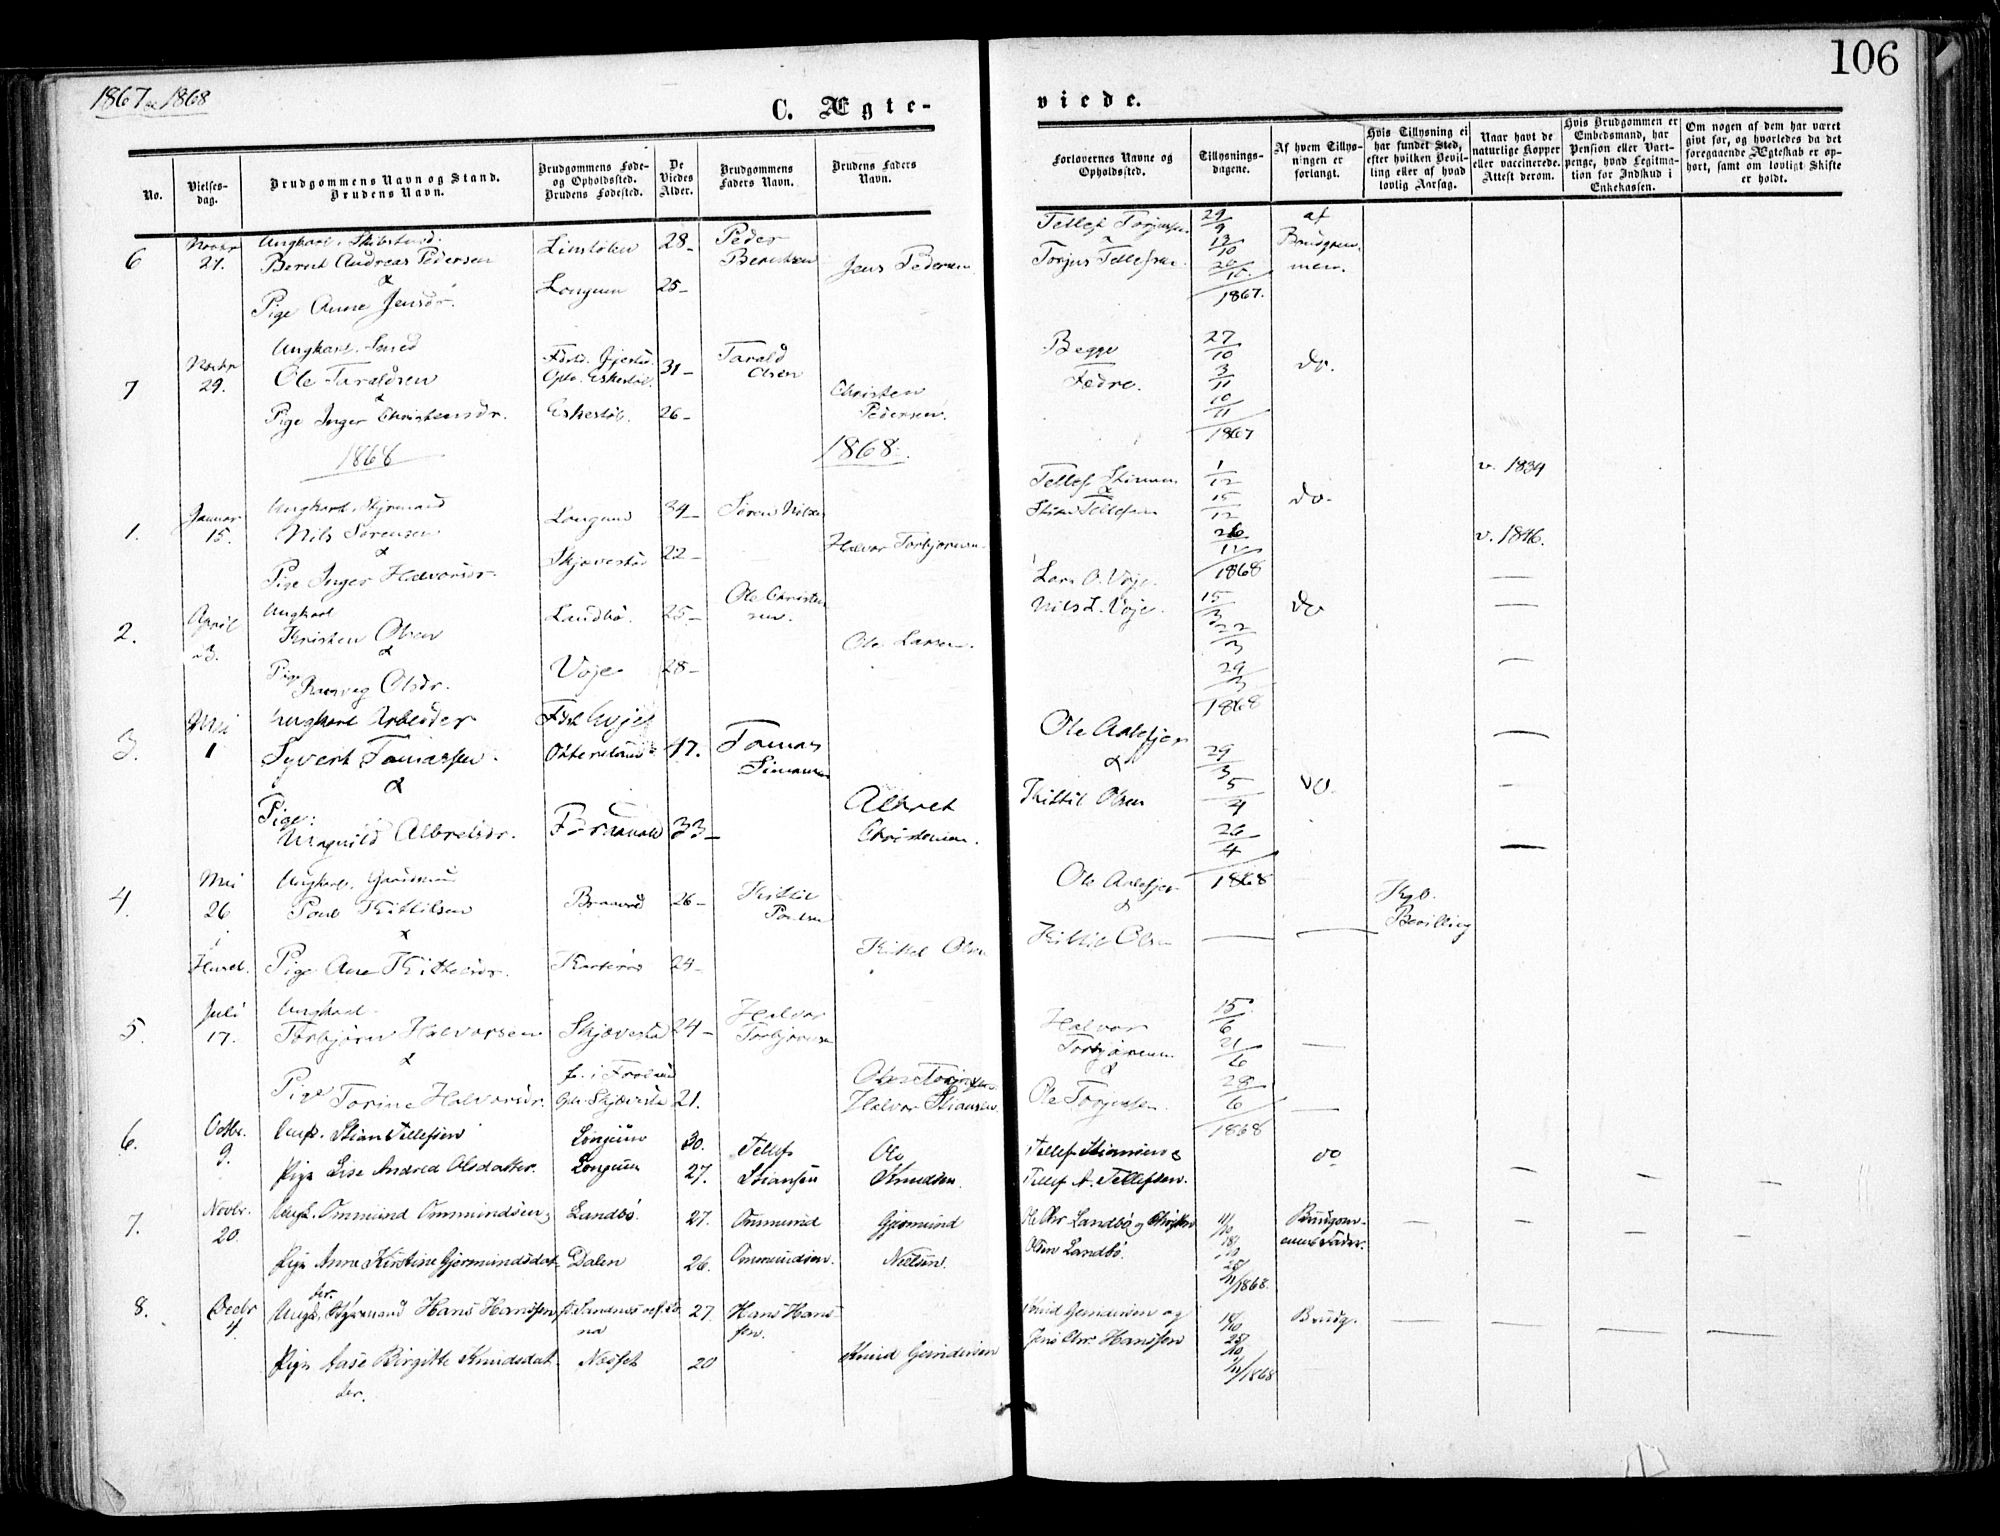 1867 & 1868
106
C. Ægte-
viede.
No.
Vielses-
dag.
Brudgommens Navn og Stand.
Brudens Navn.
Brudgommens Føde-
og Opholdssted.
Brudens Fødested.
De
Viedes
Alder.
Brudgommens
Faders Navn.
Brudens Faders
Navn.
Forlovernes Navne og
Opholdssted.
Tillysnings-
dagene.
Af hvem Tillys-
ningen er
forlangt.
Hvis Tillysning ei
har fundet Sted,
efter hvilken Bevil-
ling eller af hvad
lovlig Aarsag.
Naar havt de
naturlige Kopper
eller vaccinerede.
Attest derom.
Hvis Brudgommen er
Embedsmand, har
Pension eller Vart-
penge, hvad Legitima-
tion for Indskud i
Enkekassen.
Om nogen af dem har været
givt før, og hvorledes da det
foregaaende Ægteskab er op-
hørt, samt om lovligt Skifte
er holdt.
6 Novbr 27. Ungkarl.
Bernt Andreas Pedersen 28- Peder Berntsen
&
Pige Anne Jensdr. Longum 25- Jens Pedersen
Tellef Torjussen
&
Torjus Tellefsen
29/9 13/10 20/10 1867.
af Brudgom-
men.
7 Novbr 29. Ungkarl. Smed
Ole Taraldsen 31- Tarald Olsen
&
Pige Inger Christensdr. Eskestøl. 26- Christen Pedersen
Begge
Fedre.
27/10 3/11 10/11 1867
do.
1868
1868.
1. Januar 15. Ungkarl. Styrmand
Nils Sørensen Longum 34- Søren Nilsen
&
Pige Inger Halvorsdr. Skjævestad 22- Halvor Torbjørnsen
Tellef Stiansen
&
Stian Tellefsen
1/12 15/12 26/12 1868
do.
v. 1834
v. 1846.
2. April 23. Ungkarl
Kristen Olsen Landbø. 25- Ole Christensen.
&
Pige Olsdr. Voje 28- Ole Larsen.
Lars O. Voje.
Nils L. Voje.
15/3 22/3 29/3 1868
do
3. Mai 1 Ungkarl Arbeider
Syvert Tomassen. 47. Tomas Simonsen
&
Pige:
Magnild Albretsdr. 33- Albret Christensen.
Ole
&
Kittil Olsen
29/3 5/4 26/4 1868
do.
4. Mai 26. Ungkarl.
Poul Kittilsen 26- Kittil Poulsen
&
Pige Ane Kittelsdr. 24- Kittel Olsen
Ole
&
Kittil Olsen
Kgl.
Bevilling
5. Juli 17. Ungkarl.
Torbjørn Halvorsen Skjævestad 24- Halvor Torbjørnsen
&
Pige Torine Halvorsdr. 21. Halvor Stiansen.
Halvor
Torbjørnsen
&
Ole Torjussen.
15/6 21/6 28/6 1868
6. Octbr. 9. Ungk. Stian Tellefsen Longum 30. Tellef Ole
Pige Lise Andrea Olsdatter. Longum 27. Stiansen Knudsen.
Tellef Stiansen &
Tellef A. Tellefsen.
do
7. Novbr. 20. Ungk. Ommund Ommundsen & Landbø. 27. Ommund Gjermund
Pige Anne Kirstine Gjermundsdat- Dalen 26. Ommundsen. Nielsen.
ter.
Ole Chr. Landbø og
Olsen Landbø.
11/10 18/10 1868.
Brudgom-
mens Fader.
8. Decbr 4. Ungk. Styrmand Hans Hanssen 27. Hans Hans-
sen.
Pige Aase Birgitte Knudsdat- Næset 20 Knud
ter.
Knud og
Jens Chr. Hanssen
18/10 25/10 1/11/1868
Brudg.